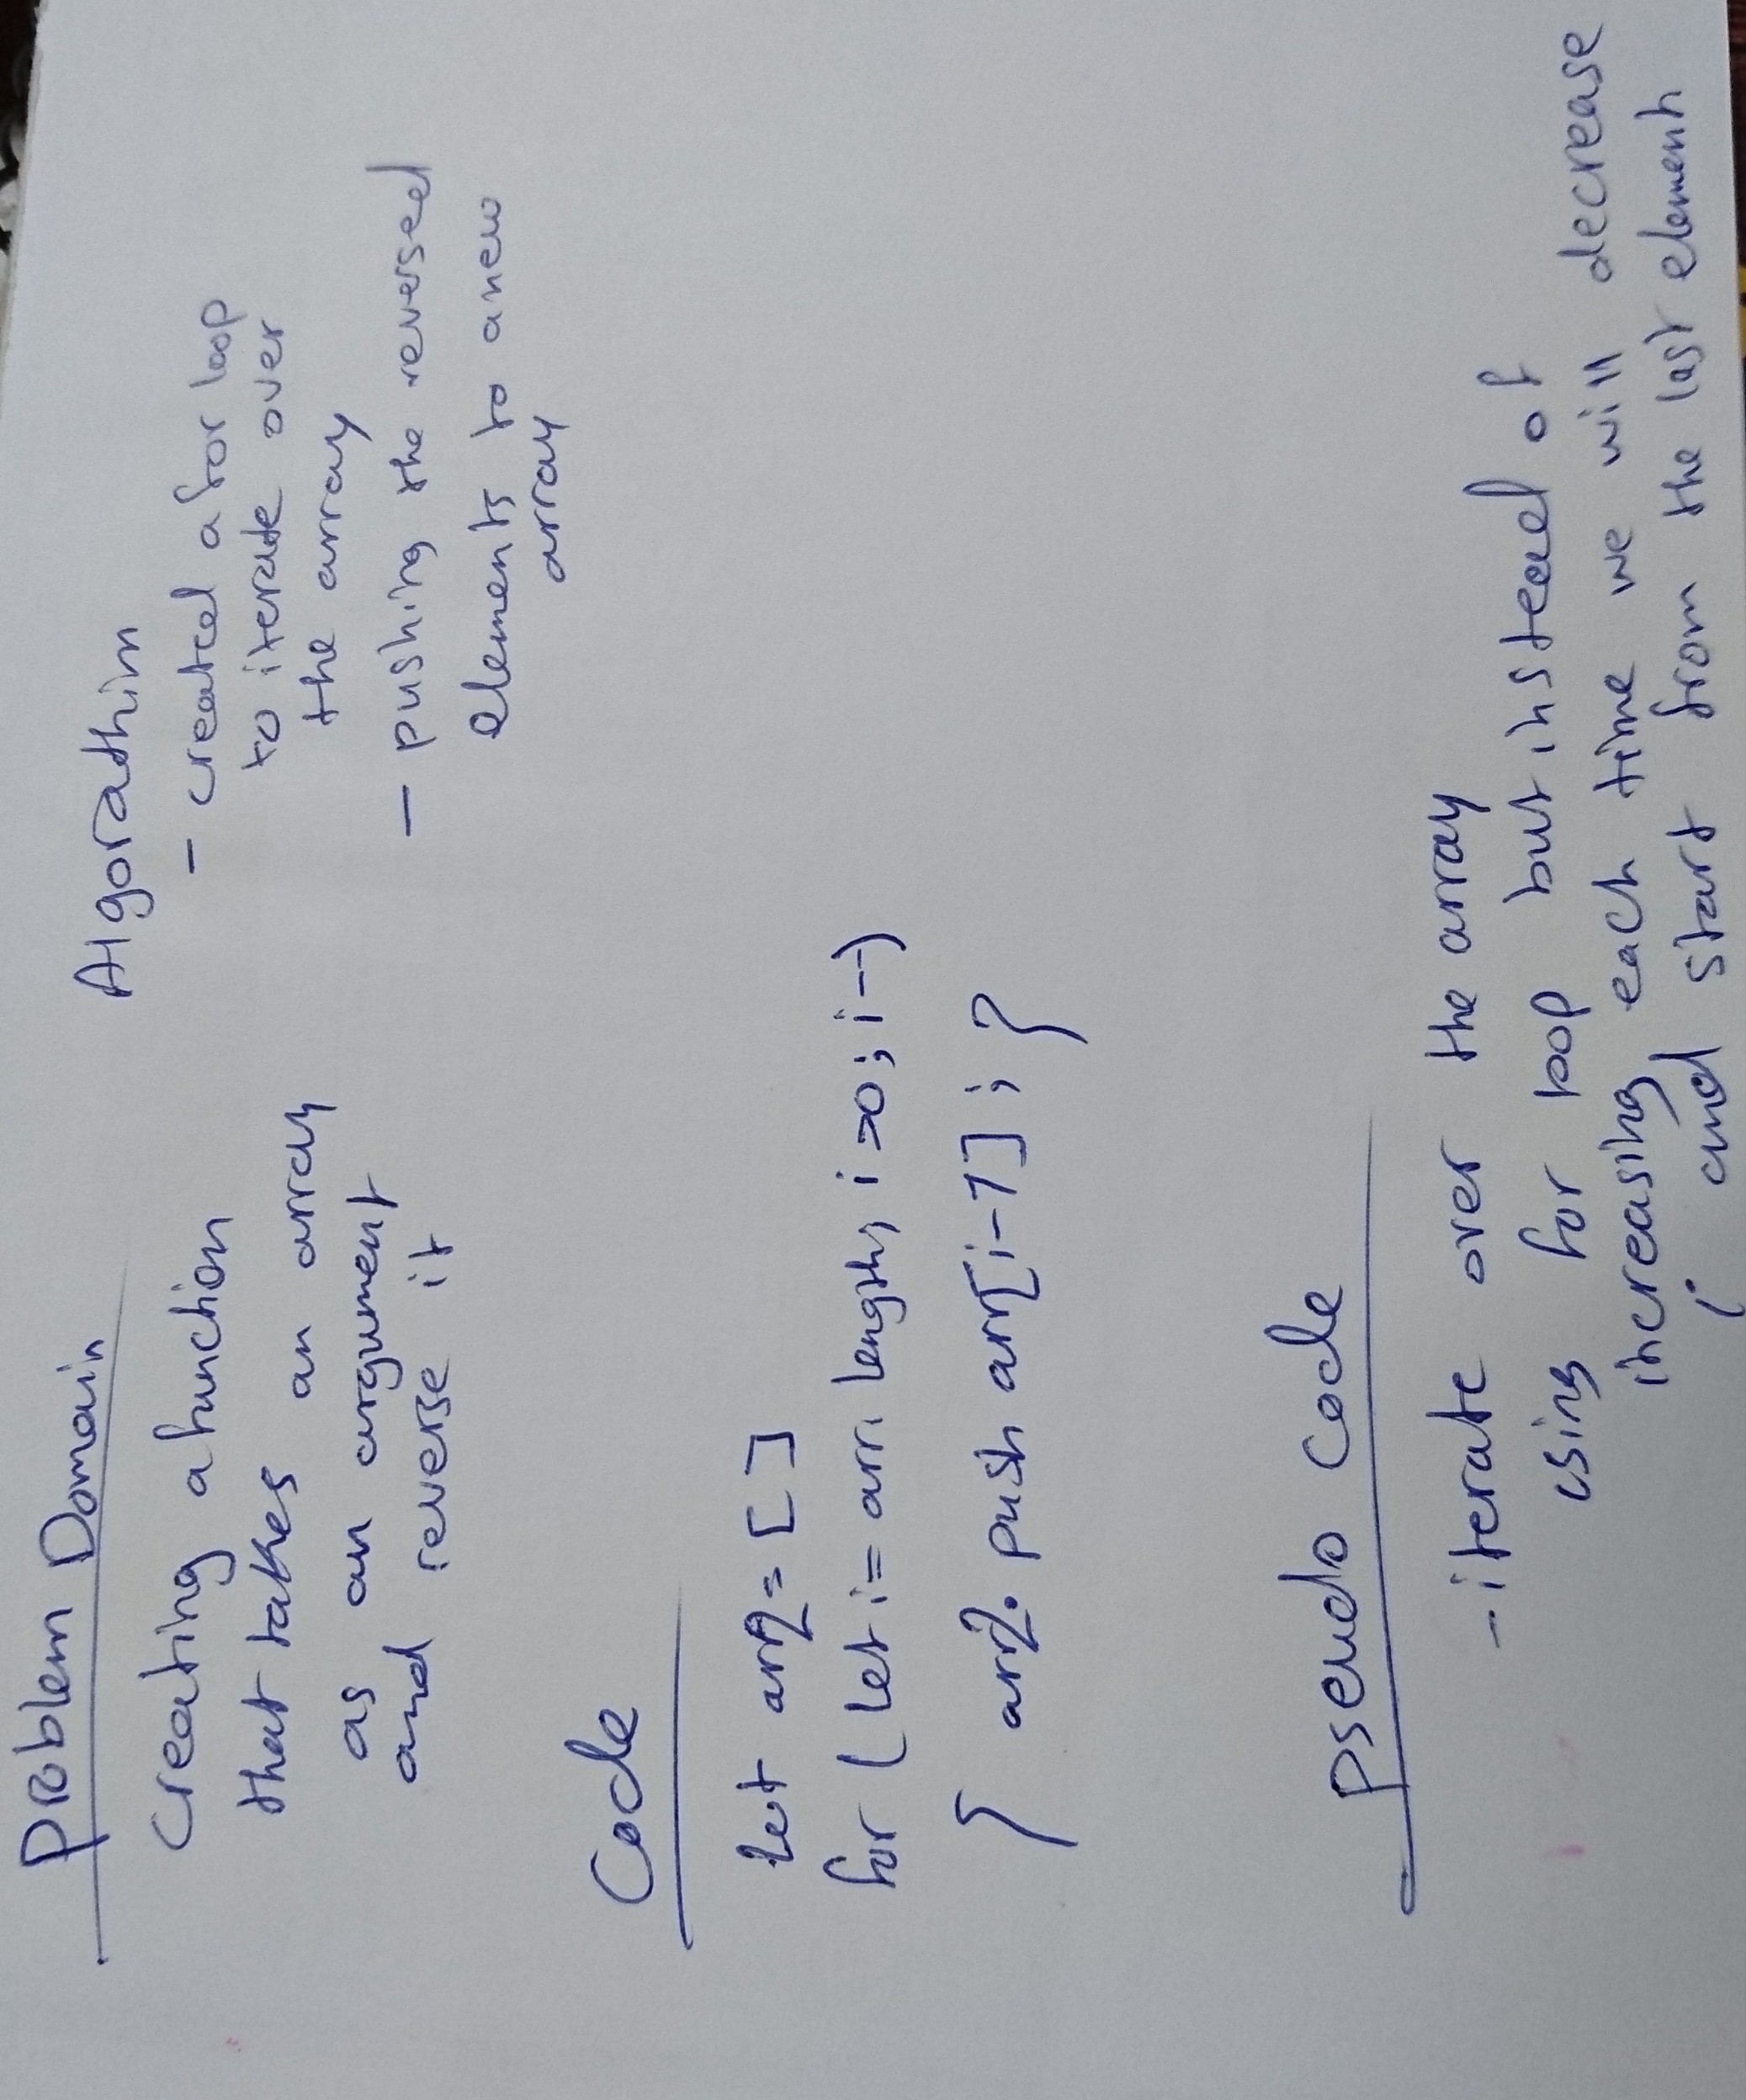 Problem Domain
creating a function
that takes an array
as an argument
and reverse it
Algorathim
- created a for loop
to iterate over
the array
- pushing the reversed
elements to a new
array
Code
let arr2 = [ ]
for ( let i = arr. length; i >0; i--)
{ arr2. push arr[i-1] ; }
pseudo code
- iterate over the array
using for loop but instead of
increasing each time we will decrease
i and start from the last element